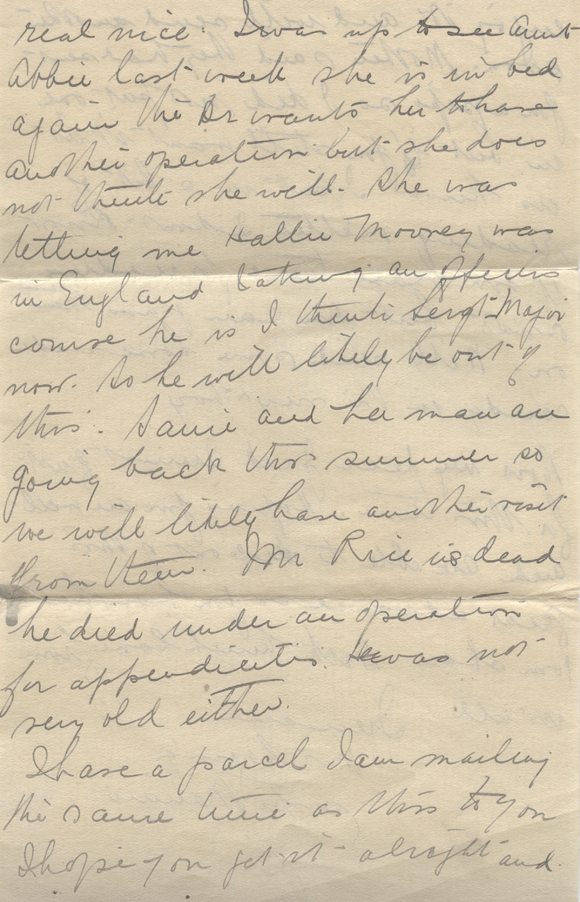 real nice. I was up to see Aunt
Abbie last week she is in bed
again the Dr wants her to have
another operation but she does
not think she will. She was
telling me Hallie Mooney was
in England taking an officers
course he is I think Sergt-Major
now. So he will likely be out of
this. Janie and her man are
going back this summer so
we will likely have another visit
from them. Mr Rice is dead
he died under an operation
for appendicitis. He was not
very old either.
I have a parcel I am mailing
the same time as this to you
I hope you get it alright and